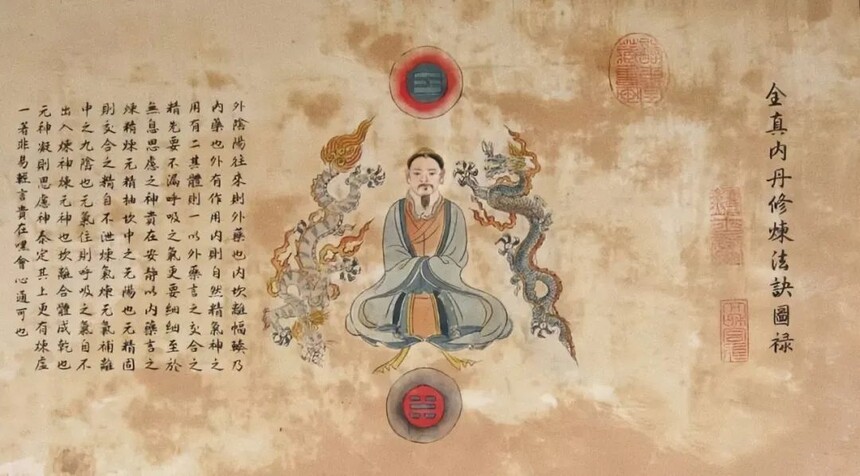 全真内丹修煉法訣圖祿
外陰陽往來則外藥也内坎離幅臻乃
内藥也外有作用内則自然精氣神之
用有二其體則一以外藥言之交合之
精先要不漏呼吸之氣更要細細至於
無息思慮之神貴在安静以内藥言之
煉精煉元精抽坎中之元陽也元精固
則交合之精自不泄煉氣煉元氣補離
中之九陰也元氣住則呼吸之氣自不
出入煉神煉元神也坎離合體成乾也
元神凝則思慮神泰定其上更有煉虛
一著非易輕言貴在嘿會心通可也